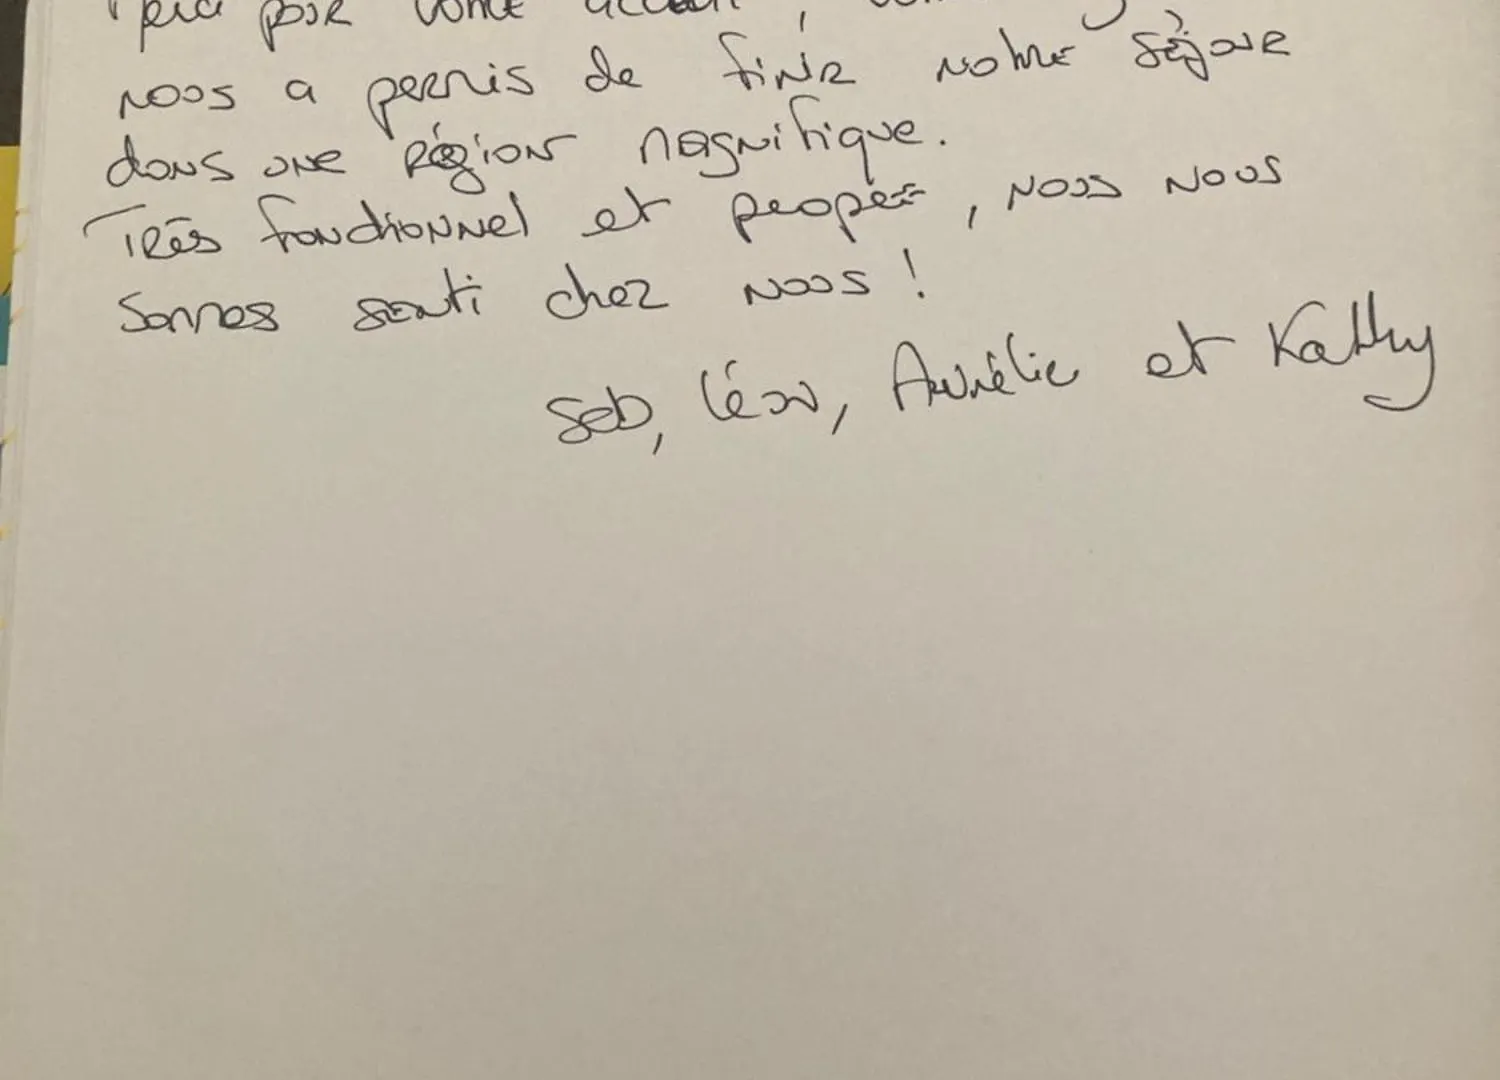 pour votre accueil,
nous a permis de finir notre séjour
dans une région magnifique.
Très fonctionnel et propre, nous nous
sommes senti chez nous !
Seb, Léon, Aurélie et Kathy